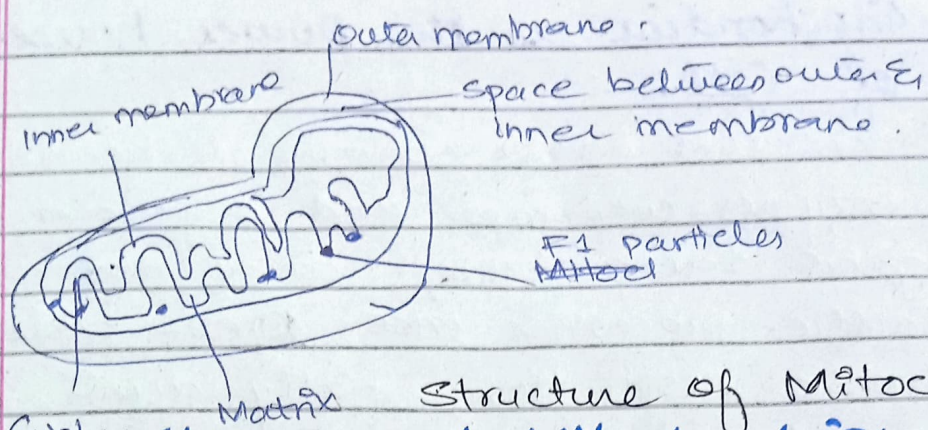 Outer membrane.
Inner membrane
Space between outer &
inner membrane.
F1 particles
Matrix
Structure of Mitoc